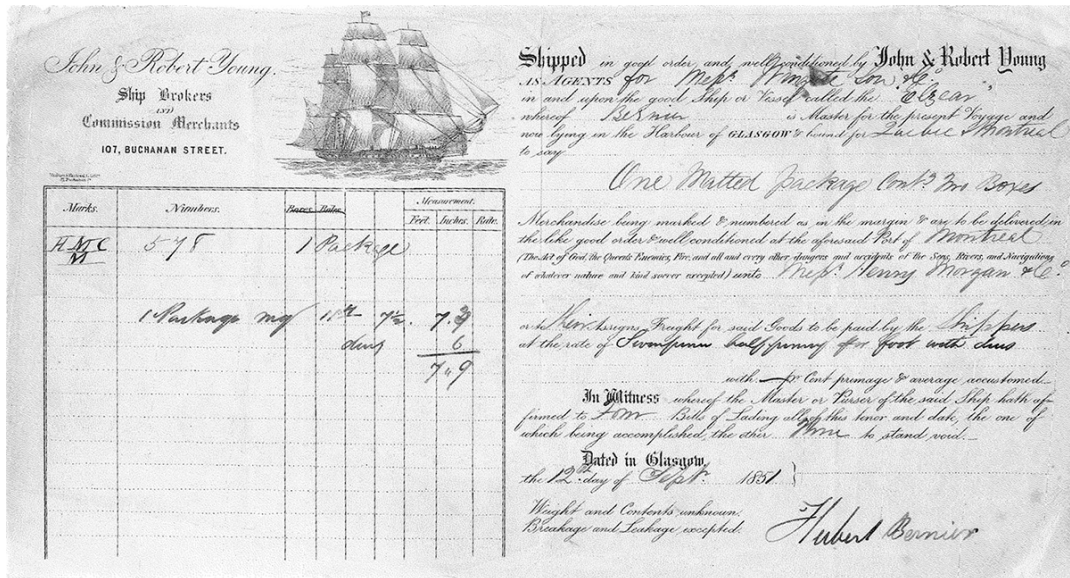 John & Robert Young.
Ship Brokers
AND
Commission Merchants
107, BUCHANAN STREET.
Marks. Numbers. Boxes Bales Measurement.
Feet. Inches. Rate.
H M C 578 1 Package
M
1 Package mg 7½ 7. 3
dues 6
7 " 9
Shipped in good order and well conditioned by John & Robert Young
AS AGENTS for Messrs. Son & Co.
in and upon the good Ship or Vessel called the "Elzear"
whereof Bernier is Master for the present Voyage and
now lying in the Harbour of GLASGOW & bound for Quebec & Montreal
to say
One Matted package Contg. Two Boxes
Merchandise being marked & numbered as in the margin & are to be delivered in
the like good order & well conditioned at the aforesaid Port of Montreal
(The Act of God, the Queen's Enemies, Fire, and all and every other dangers and accidents of the Seas, Rivers, and Navigation
of whatever nature and kind soever excepted) unto Messrs. Henry Morgan & Co.
or to their Assigns, Freight for said Goods to be paid by the Shippers
at the rate of Sevenpence halfpenny pr foot with dues
with pr Cent primage & average accustomed.
In Witness whereof the Master or Purser of the said Ship hath af-
firmed to Four Bills of Lading all of this tenor and date, the one of
which being accomplished, the other Three to stand void.
Dated in Glasgow,
the 12th day of Sept. 1851
Weight and Contents unknown.
Breakage and Leakage excepted.
Hubert Bernier